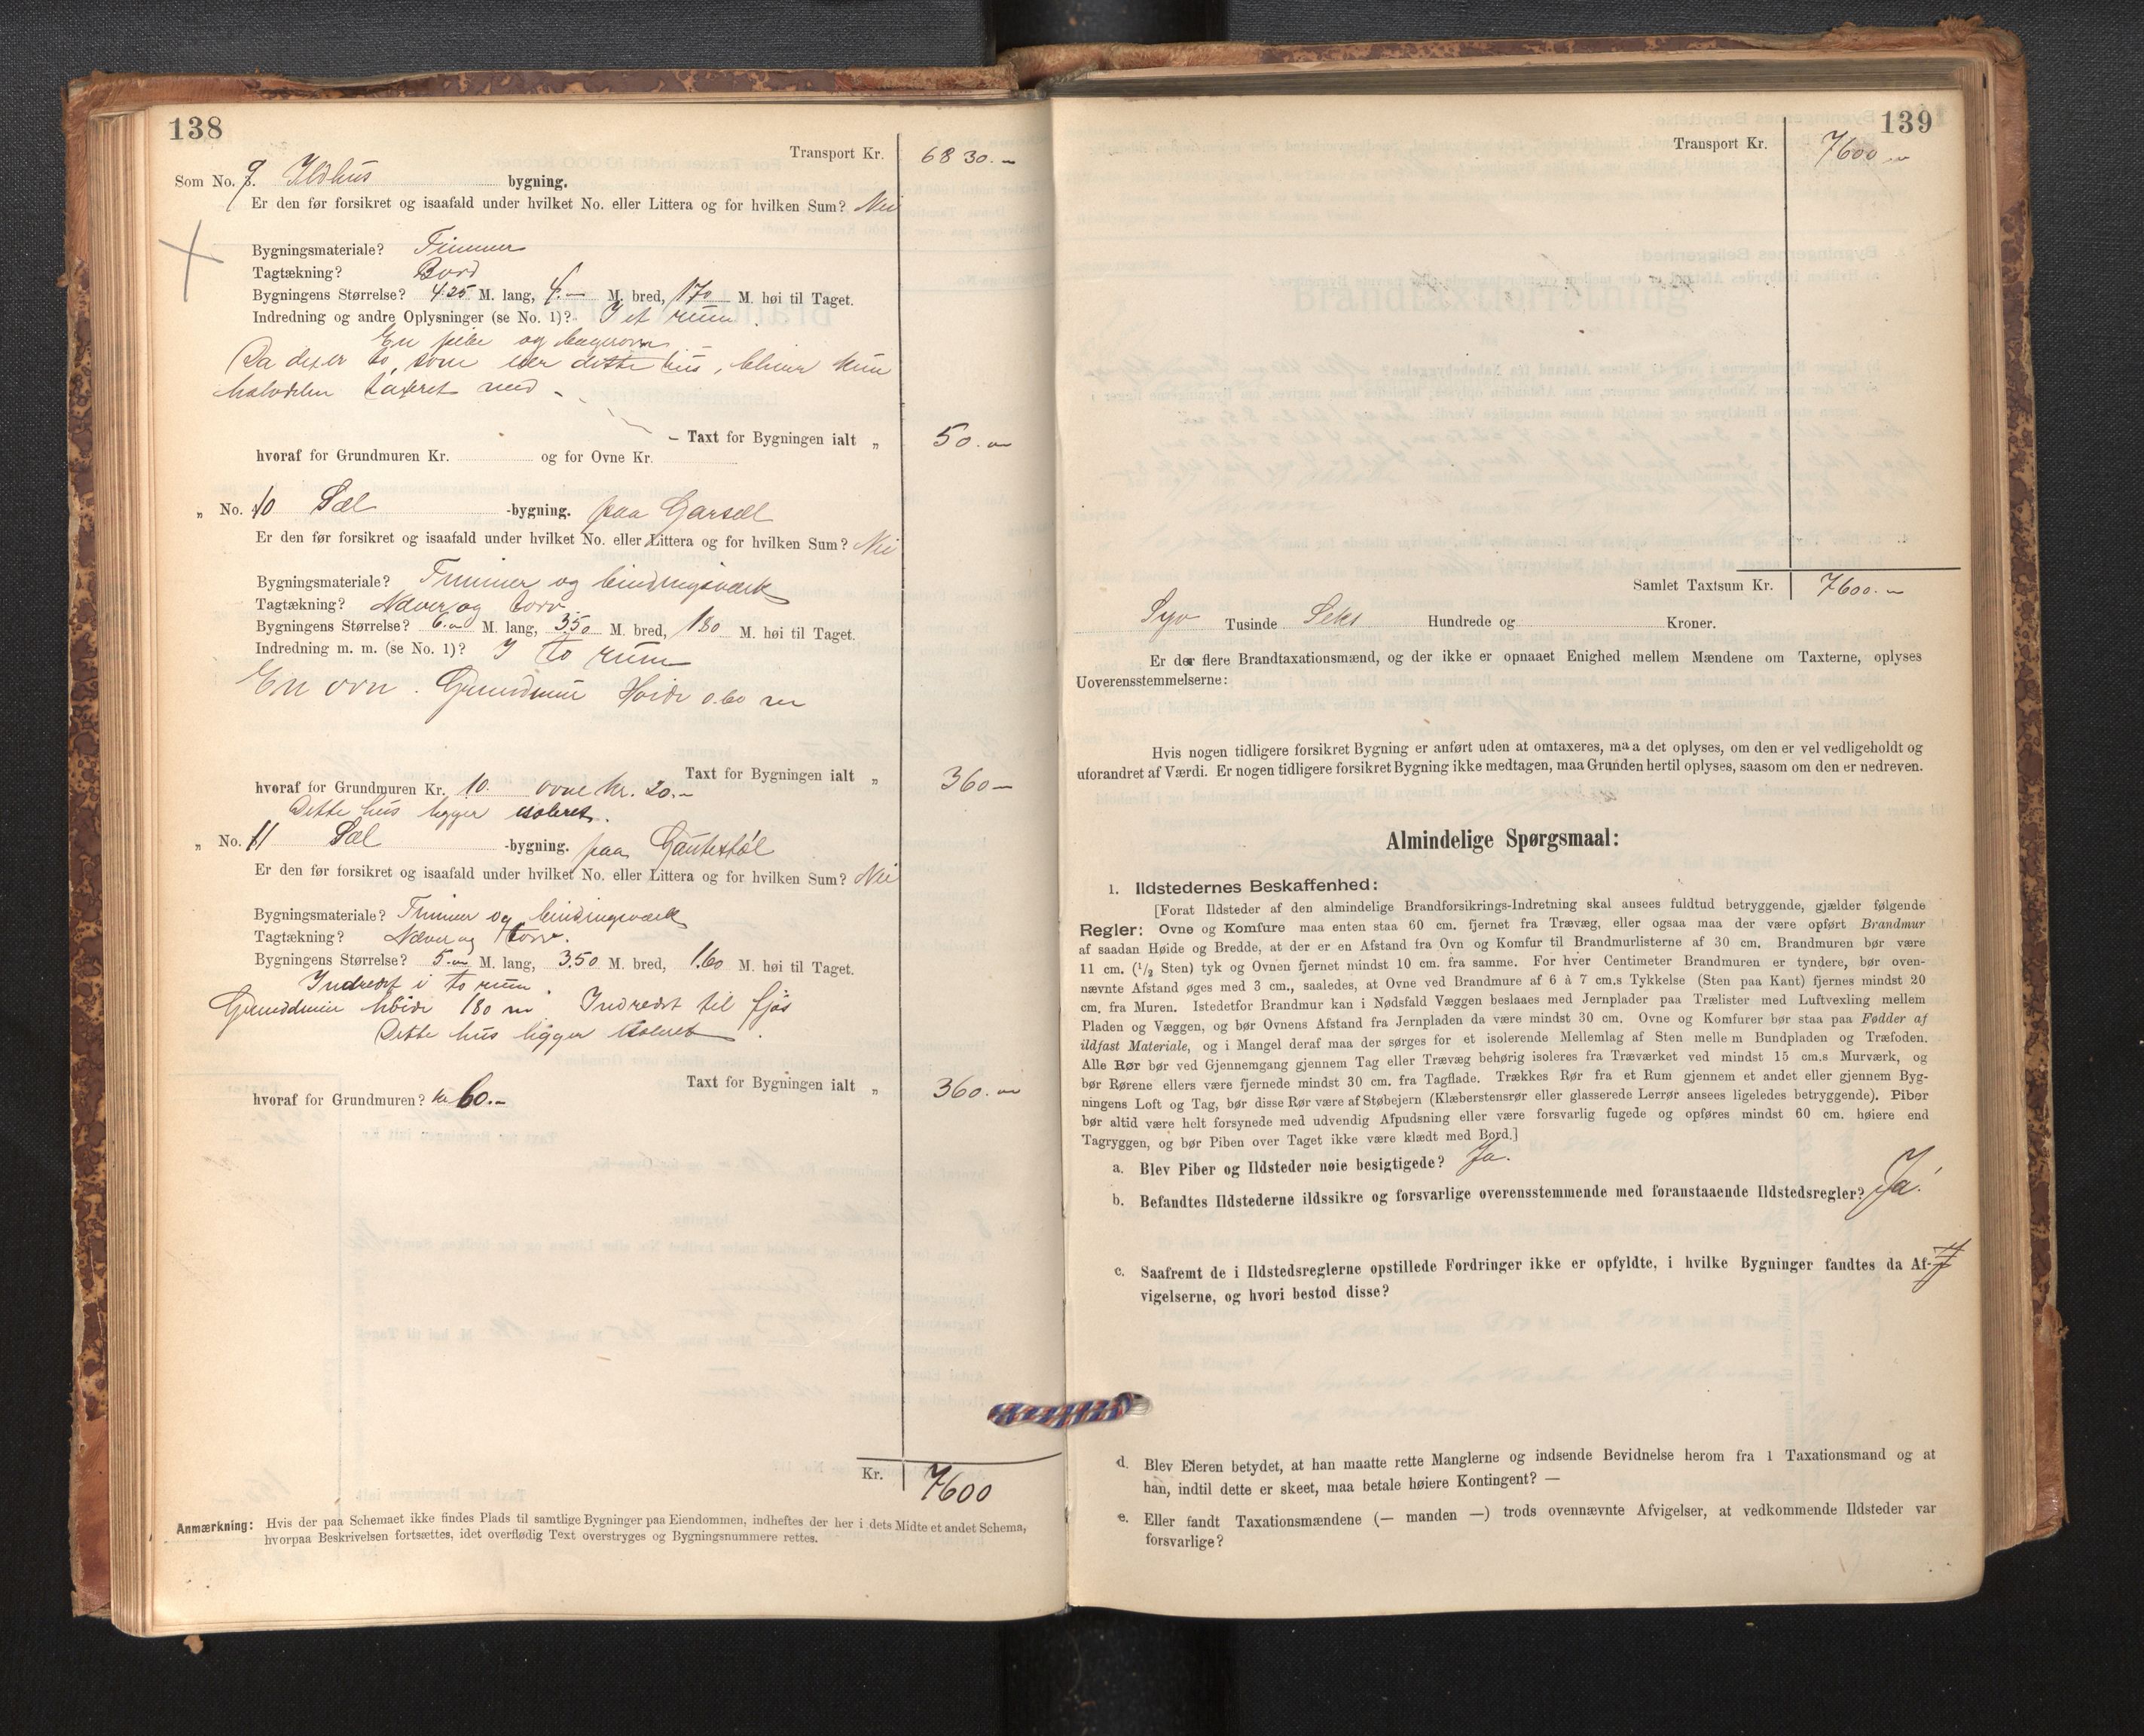 138
Transport Kr. 6830.–
Som No. 9. Ildhus bygning.
Er den før forsikret og isaafald under hvilket No. eller Littera og for hvilken Sum? Nei
Bygningsmateriale? Timmer
Tagtækning? Bord
Bygningens Størrelse? 4.25 M. lang, 4.– M. bred, 170 M. høi til Taget.
Indredning og andre Oplysninger (se No. 1)? I et rum.
En pibe og bagerovn
Da der er to, som eier dette hus, bliver kun
halvdelen taxeret med –
– Taxt for Bygningen ialt „ 50.–
hvoraf for Grundmuren Kr. og for Ovne Kr.
„ No. 10 Sæl -bygning. paa Garsæl
Er den før forsikret og isaafald under hvilket No. eller Littera og for hvilken Sum? Nei
Bygningsmateriale? Timmer og bindingsværk
Tagtækning? Næver og torv.
Bygningens Størrelse? 6.– M. lang, 3.50 M. bred, 180 M. høi til Taget.
Indredning m. m. (se No. 1)? I to rum
En ovn. Grundmur Høide 0.60 m
Taxt for Bygningen ialt „ 360–
hvoraf for Grundmuren Kr. 10. ovne Kr. 20.–
Dette hus ligger isoleret.
„ No. 11 Sæl -bygning. paa Gautestøl
Er den før forsikret og isaafald under hvilket No. eller Littera og for hvilken Sum? Nei
Bygningsmateriale? Timmer og bindingsværk
Tagtækning? Næver og torv.
Bygningens Størrelse? 5.– M. lang, 3.50 M. bred, 1.60 M. høi til Taget.
Indredet i to rum.
Grundmur høide 180 m Indredet til fjøs
Dette hus ligger isoleret.
Taxt for Bygningen ialt „ 360.–
hvoraf for Grundmuren? Kr 60.–
Kr. 7600
Anmærkning: Hvis der paa Schemaet ikke findes Plads til samtlige Bygninger paa Eiendommen, indheftes der her i dets Midte et andet Schema,
hvorpaa Beskrivelsen fortsættes, idet overflødig Text overstryges og Bygningsnummere rettes.
139
Transport Kr. 7600–
Samlet Taxtsum Kr. 7600.–
Syv Tusinde Seks Hundrede og Kroner.
Er der flere Brandtaxationsmænd, og der ikke er opnaaet Enighed mellem Mændene om Taxterne, oplyses
Uoverensstemmelserne:
Hvis nogen tidligere forsikret Bygning er anført uden at omtaxeres, maa det oplyses, om den er vel vedligeholdt og
uforandret af Værdi. Er nogen tidligere forsikret Bygning ikke medtagen, maa Grunden hertil oplyses, saasom om den er nedreven.
Almindelige Spørgsmaal:
1. Ildstedernes Beskaffenhed:
[Forat Ildsteder af den almindelige Brandforsikrings-Indretning skal ansees fuldtud betryggende, gjælder følgende
Regler: Ovne og Komfure maa enten staa 60 cm. fjernet fra Trævæg, eller ogsaa maa der være opført Brandmur
af saadan Høide og Bredde, at der er en Afstand fra Ovn og Komfur til Brandmurlisterne af 30 cm. Brandmuren bør være
11 cm. (1/2 Sten) tyk og Ovnen fjernet mindst 10 cm. fra samme. For hver Centimeter Brandmuren er tyndere, bør oven-
nævnte Afstand øges med 3 cm., saaledes, at Ovne ved Brandmure af 6 à 7 cm.s Tykkelse (Sten paa Kant) fjernes mindst 20
cm. fra Muren. Istedetfor Brandmur kan i Nødsfald Væggen beslaaes med Jernplader paa Trælister med Luftvexling mellem
Pladen og Væggen, og bør Ovnens Afstand fra Jernpladen da være mindst 30 cm. Ovne og Komfurer bør staa paa Fødder af
ildfast Materiale, og i Mangel deraf maa der sørges for et isolerende Mellemlag af Sten mellem Bundpladen og Træfoden.
Alle Rør bør ved Gjennemgang gjennem Tag eller Trævæg behørig isoleres fra Træværket ved mindst 15 cm.s Murværk, og
bør Rørene ellers være fjernede mindst 30 cm. fra Tagflade. Trækkes Rør fra et Rum gjennem et andet eller gjennem Byg-
ningens Loft og Tag, bør disse Rør være af Støbejern (Klæberstensrør eller glasserede Lerrør ansees ligeledes betryggende). Piber
bør altid være helt forsynede med udvendig Afpudsning eller være forsvarlig fugede og opføres mindst 60 cm. høiere end
Tagryggen, og bør Piben over Taget ikke være klædt med Bord.]
a. Blev Piber og Ildsteder nøie besigtigede? Ja.
b. Befandtes Ildstederne ildssikre og forsvarlige overensstemmende med foranstaaende Ildstedsregler? Ja.
c. Saafremt de i Ildstedsreglerne opstillede Fordringer ikke er opfyldte, i hvilke Bygninger fandtes da Af-
vigelserne, og hvori bestod disse?
d. Blev Eieren betydet, at han maatte rette Manglerne og indsende Bevidnelse herom fra 1 Taxationsmand og at
han, indtil dette er skeet, maa betale høiere Kontingent? —
e. Eller fandt Taxationsmændene (— manden —) trods ovennævnte Afvigelser, at vedkommende Ildsteder var
forsvarlige?